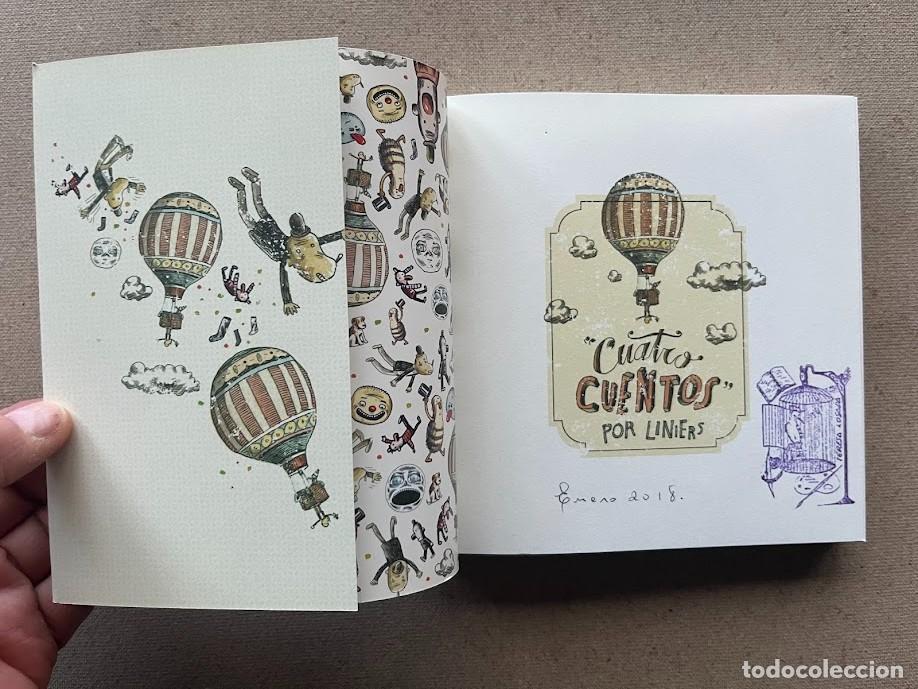 "Cuatro
CUENTOS"
POR LINIERS
Enero 2018.
todocoleccion